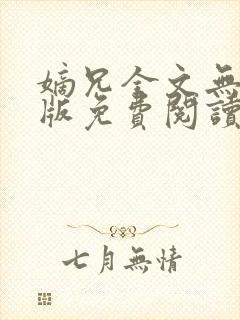 嫡兄全文無
版免費閱讀
七月無情